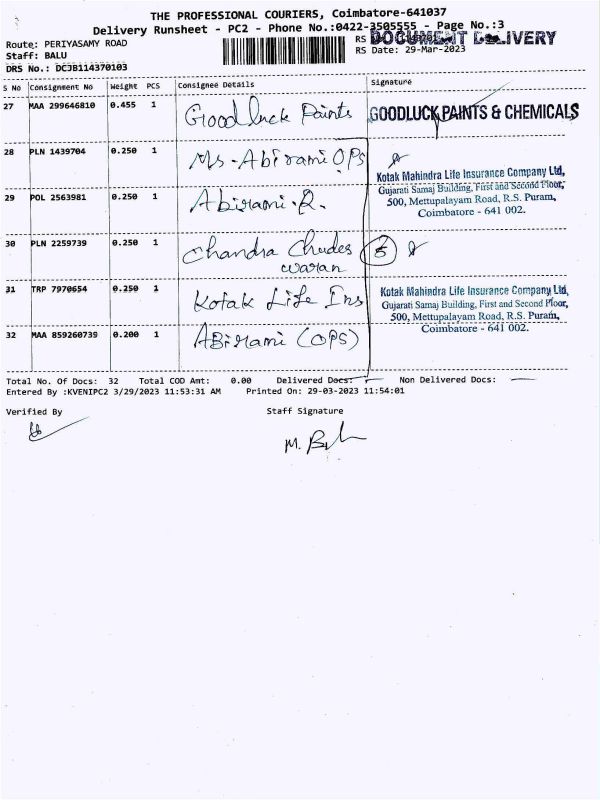 THE PROFESSIONAL COURIERS, Coimbatore-641037
Delivery Runsheet - PC2 - Phone No.:0422-3505555 - Page No.:3
Route: PERIYASAMY ROAD
RS DOCUMENT DELIVERY
Staff: BALU
RS Date: 29-Mar-2023
DRS No.: DCJB114370103
S No Consignment No Weight PCS Consignee Details Signature
27 MAA 299646810 0.455 1 Goodluck Paints GOODLUCK PAINTS & CHEMICALS
28 PLN 1439704 0.250 1 Ms-Abirami OPs
Kotak Mahindra Life Insurance Company Ltd,
Gujarati Samaj Building, First and Second Floor,
29 POL 2563981 0.250 1 Abirami.R. 500, Mettupalayam Road, R.S. Puram,
Coimbatore - 641 002.
30 PLN 2259739 0.250 1 Chandra Chudes
waran
5
31 TRP 7970654 0.250 1 Kotak Life Ins Kotak Mahindra Life Insurance Company Ltd,
Gujarati Samaj Building, First and Second Floor,
500, Mettupalayam Road, R.S. Puram,
32 MAA 859260739 0.200 1 ABirami (OPS) Coimbatore - 641 002.
Total No. Of Docs: 32 Total COD Amt: 0.00 Delivered Docs: Non Delivered Docs:
Entered By :KVENIPC2 3/29/2023 11:53:31 AM Printed On: 29-03-2023 11:54:01
Verified By Staff Signature